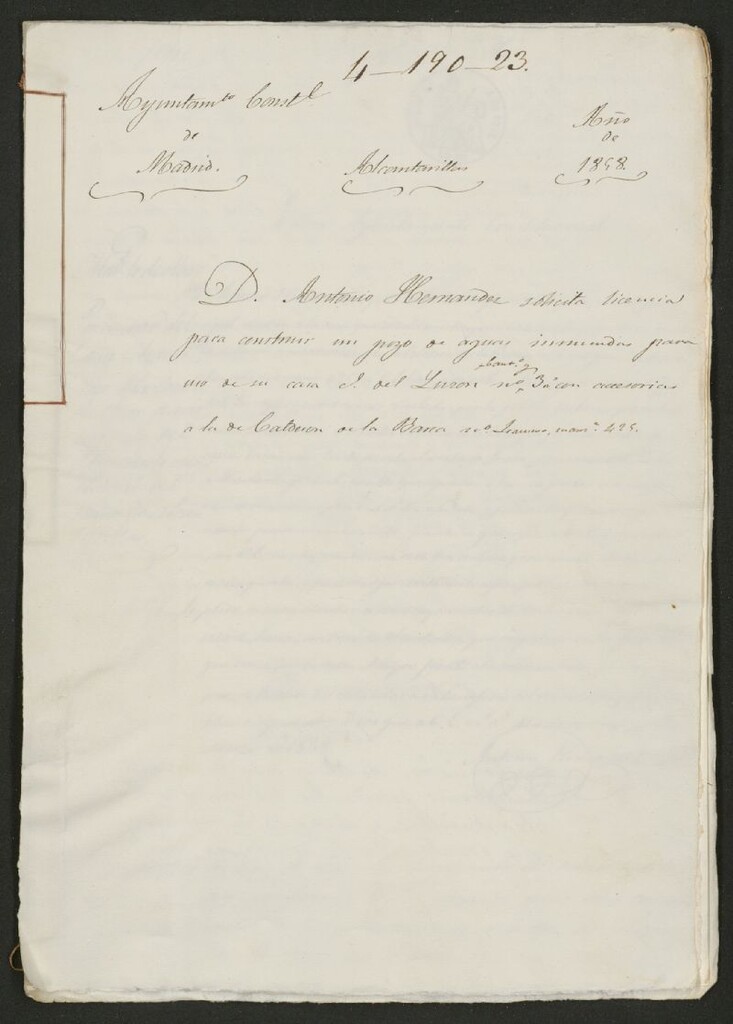 4-190-23.
Ayuntamto Constl
de
Madrid.
Alcantarillas
Año
de
1848.
D. Antonio Hernandez solicita licencia
para construir un pozo de aguas inmundas para
uso de su casa C. del Luzon no 3 con accesorias
a la de Calderon de la Barca no manza 425.